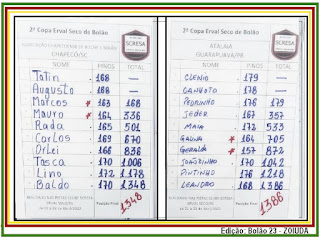 2ª Copa Erval Seco de Bolão
CHAPECÓ/SC
NOME PINOS TOTAL
Tatin 168 —
Augusto 168 —
Marcos * 163 168
Mauro * 164 336
Rada 165 501
Carlos 169 670
Orlei 168 836
Tosca 170 1006
Lino 172 1178
Baldo 170 1348
1348
2ª Copa Erval Seco de Bolão
ATALAIA
GUARAPUAVA/PR
NOME PINOS TOTAL
CLENIO 179 —
CANHOTO 178 —
PEDRINHO 176 179
JEDER 167 357
MAIA 172 533
GALINA * 164 705
GERALDO * 157 872
JOÃOZINHO 170 1042
PINTINHO 176 1218
LEANDRO 168 1386
1386
Edição: Bolão 23 - ZOIUDA